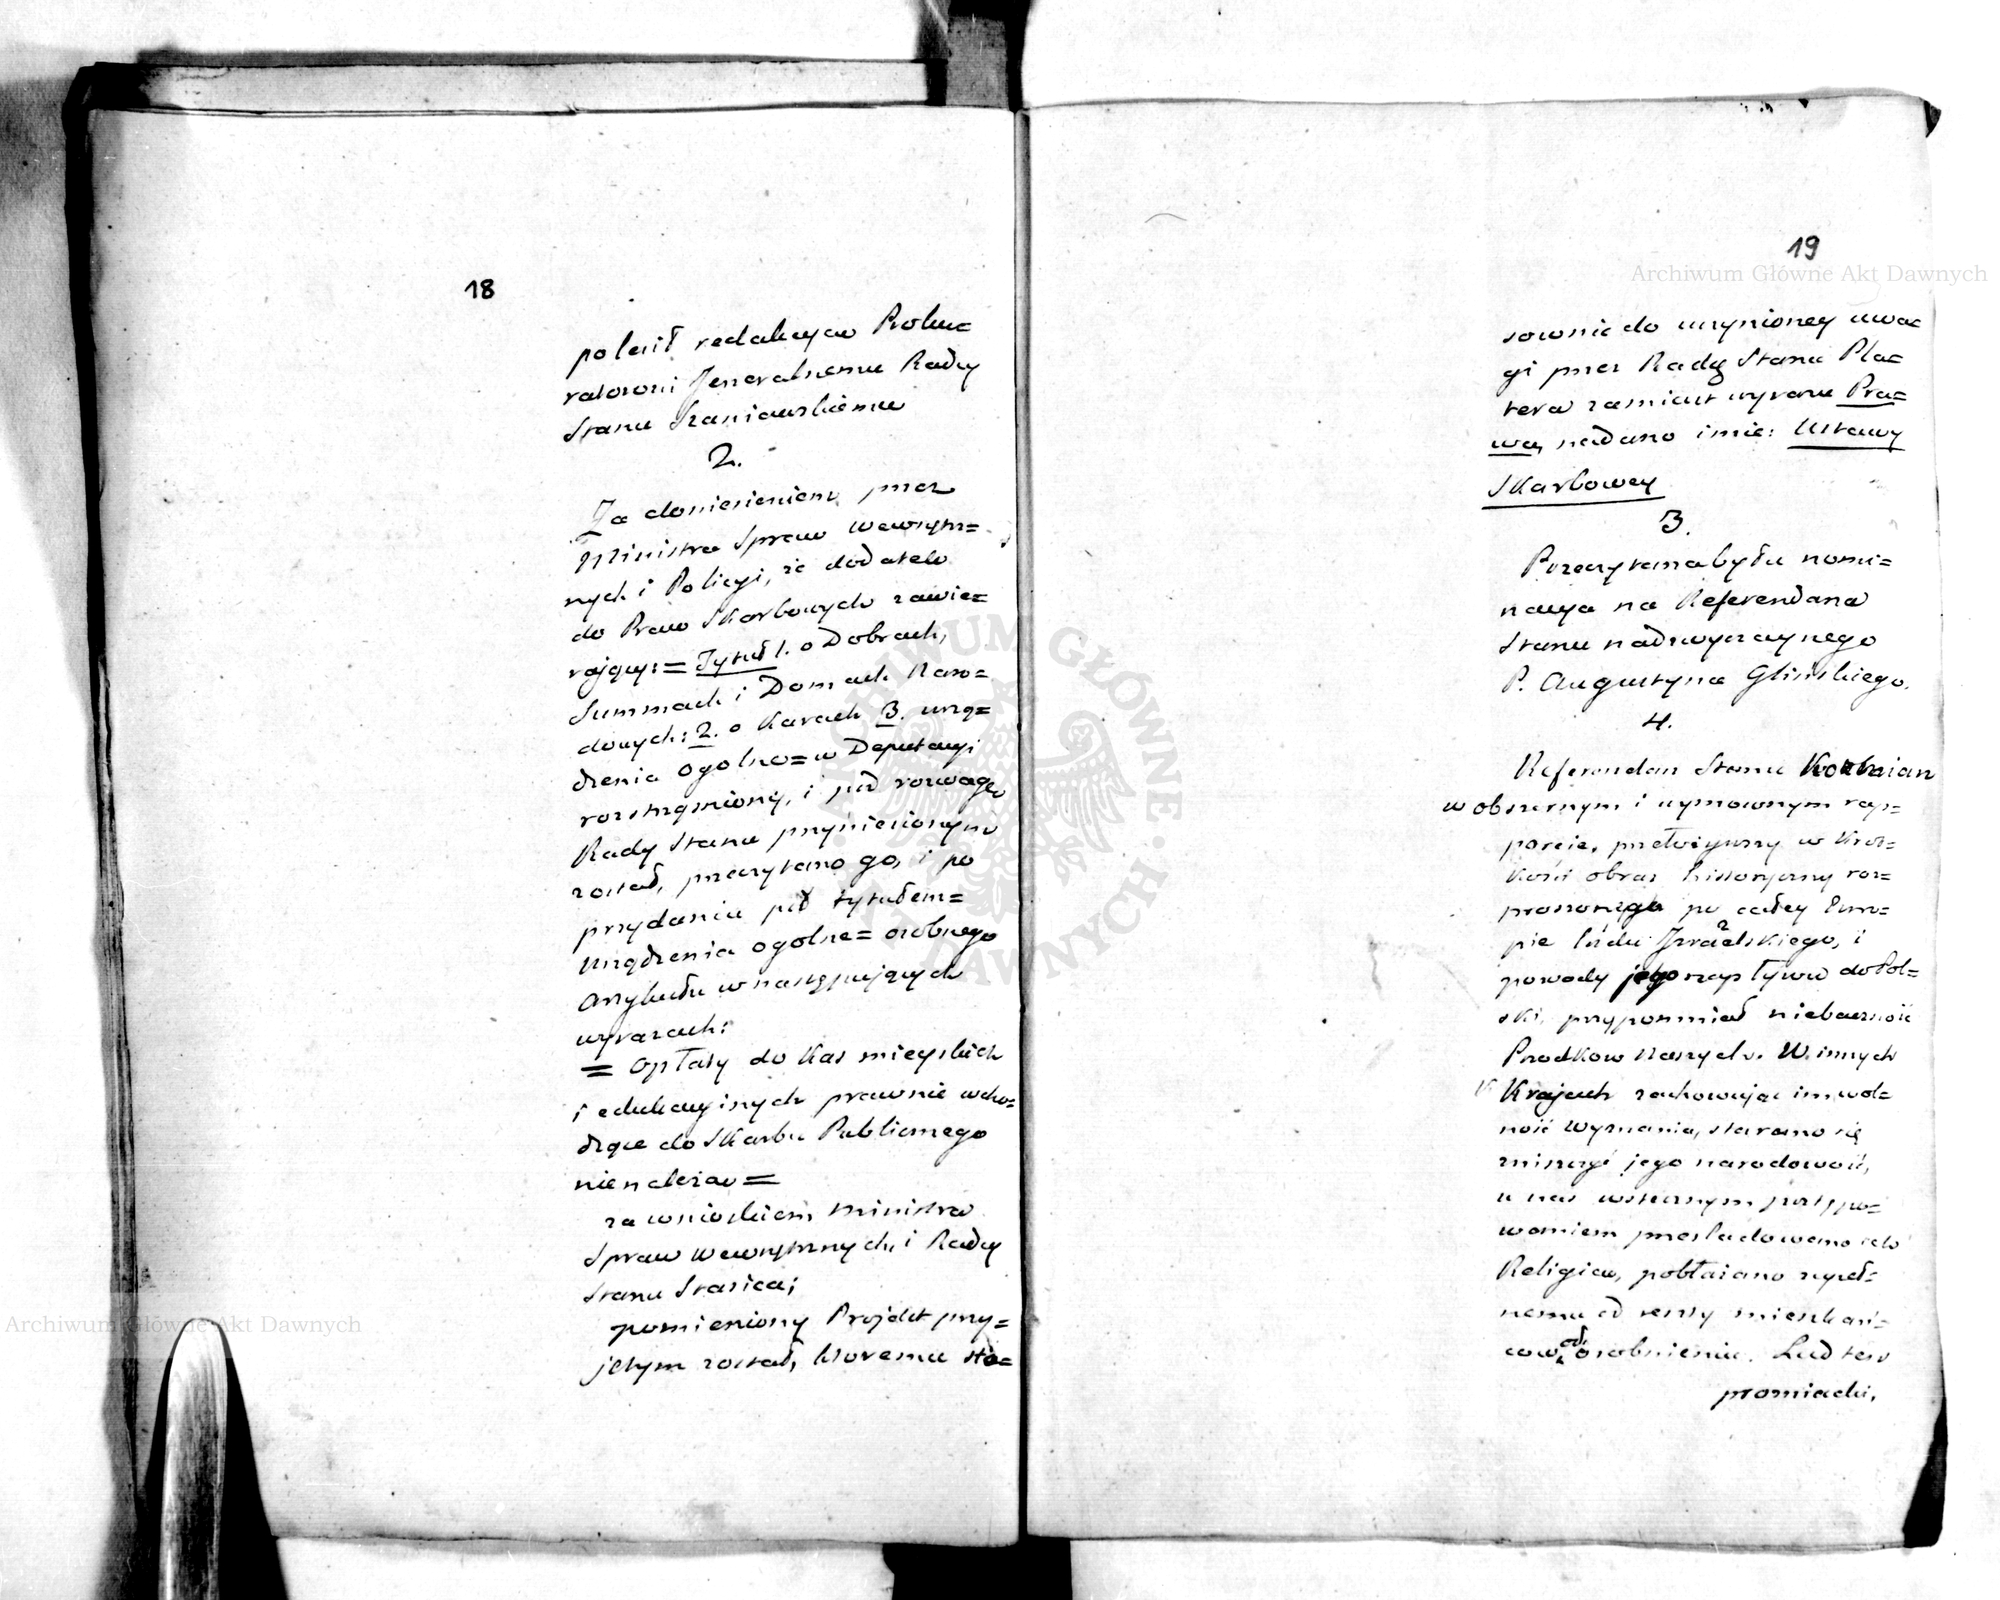 18
polecił redakcyą Proku=
ratorowi Jeneralnemu Radcy
Stanu Szaniawskiemu
2.
Za doniesieniem przez
Ministra Spraw Wewnętrz=
nych i Policyi, że dodatek
do Praw Skarbowych zawie=
rający: = Tytuł 1. o Dobrach,
Summach i Domach Naro=
dowych: 2. o Karach 3. urzą=
dzenia ogolne = w Deputacyi
roztrząśniony, i pod rozwagę
Rady Stanu przyniesionym
został, przeczytano go, i po
przydaniu pod tytułem =
Urządzenia ogolne = osobnego
Artykułu w następujących
wyrazach:
= Opłaty do Kas mieyskich
i edukacyinych prawnie wcho=
dzące do Skarbu Publicznego
nienależą =
za wnioskiem Ministra
Spraw Wewnętrznych i Radcy
Stanu Stasica;
pomieniony Projekt przy=
jętym został, ktoremu sto=
19
sownie do uczynioney uwa=
gi przez Radcę Stanu Pla=
tera zamiast wyrazu Pra=
wa, nadano imie: Ustawy
Skarbowey
3.
Przeczytana była nomi=
nacya na Referendarza
Stanu nadzwyczaynego
P. Augustyna Glińskiego.
4.
Referendarz Stanu Koźmian
w obszernym i wymownym rap=
porcie, przełożywszy w krót=
kości obraz historyczny roz=
proszonego po całey Euro=
pie ludu Izraelskiego, i
powody jego wpływu do Pol=
ski, przypomniał niebaczność
Przodkow naszych. W innych
Krajach zachowując im wol=
ność wyznania, starano się
zniszczyć jego narodowość,
u nas wstecznym postępo=
waniem prześladowano ich
Religią, pobłażano zupeł=
nemu od reszty mieszkań=
cow odosobnieniu. Lud ten